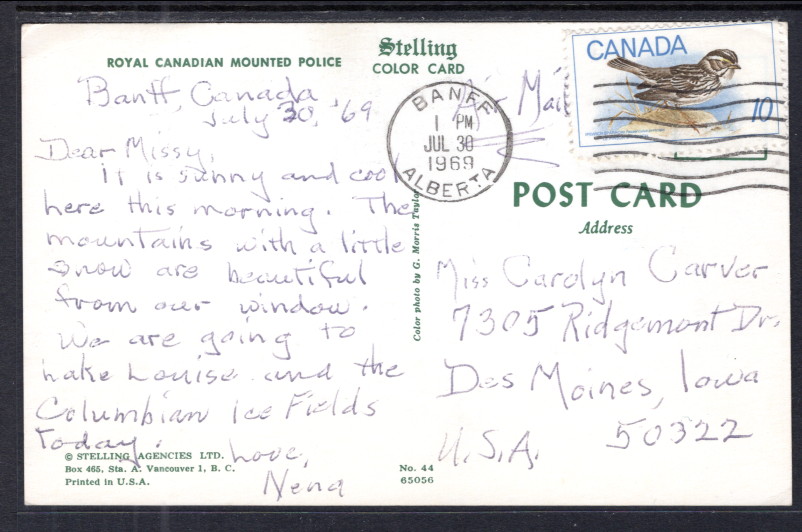 ROYAL CANADIAN MOUNTED POLICE
Stelling
COLOR CARD
Banff, Canada
July 30, '69
Dear Missy,
It is sunny and cool
here this morning. The
mountains with a little
snow are beautiful
from our window.
We are going to
Lake Louise and the
Columbian Ice Fields
today.
Love,
Nena
© STELLING AGENCIES LTD.
Box 465, Sta. A. Vancouver 1, B. C.
Printed in U.S.A.
No. 44
65056
Color photo by G. Morris Taylor
Air Mail
BANFF
1 PM
JUL 30
1969
ALBERTA
CANADA
10
POST CARD
Address
Miss Carolyn Carver
7305 Ridgemont Dr.
Des Moines, Iowa
50322
U.S.A.